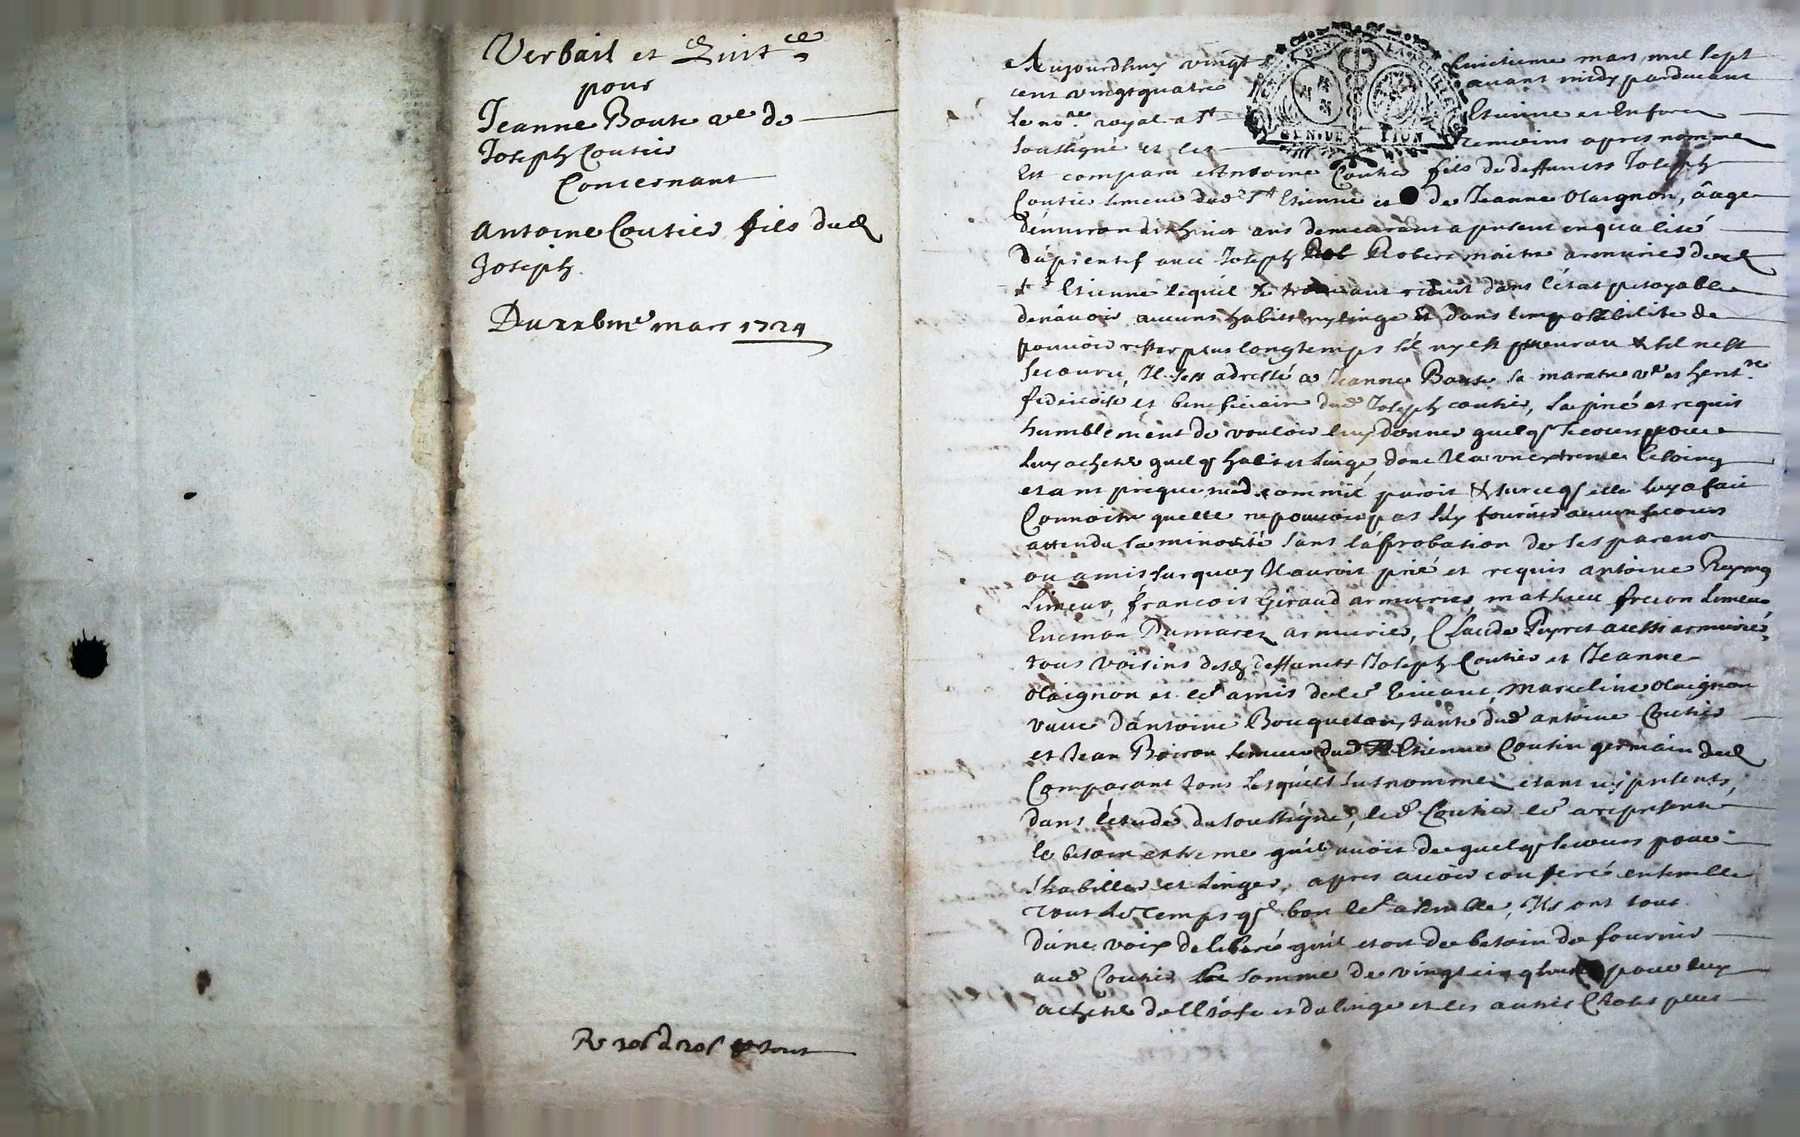 Verbail et Quittce
pour
Jeanne Boute ve de
Joseph Coutier
Concernant
Antoine Coutier fils dud
Joseph
Du mars 1724
tout
Aujourdhuy vingt huitieme mars mil sept
cent vingt quatre avant midy pardevant
le nore royal a St Etienne en forez
soussigné et les temoins apres nommé
Est comparu Antoine Coutier fils de deffuncts Joseph
Coutier limeur dud St Etienne et de Jeanne Olaignon, aagé
denviron dishuict ans demeurant apresent en qualité
dáprentif avec Joseph Robert maitre armurier dud
St Etienne lequél se trouvant réduit dans létat pitoyable
denávoir aucuns habits ny linge et dans limpossibilité de
pouvoir rester plus longtemps sil ny est pourvu & sil nest
secouru, Il sest adressé a Jeanne Boute sa maratre ve et
et beneficiaire dud Joseph coutier, la prié et requis
humblement de vouloir luy donner quelq secours pour
luy acheter quelq habit et linge, dont Il a une extreme besoing
etant presque nud comme il paroit & surceq elle luy a fait
Connoitre quelle ne pouvoit pas luy fournir aucun secours
attendu sa minorité sans láprobation de ses parens
ou amis surquoy Il auroit prié et requis antoine
limeur, francois Géraud armurier, mathieu limeur,
Damarez armurier, Claude Peyret aussi armurier,
tous voisins desd deffuncts Joseph Coutier et Jeanne
Olaignon et amis Marcelline Olaignon
veuve dántoine Bouqueton, tante dud antoine Coutier
et Jean Boiron limeur dud St Etienne Cousin germain dud
Comparant tous lesquéls susnommé etant icy présents,
dans létude du soussigné, led Coutier a representé
le besoin extreme quil avoit de quelq secours pour
shabiller et linger, apres avoir conferé ensemble
tout le temps q bon a semblé, Ils ont tous
dúne voix deliberé quil etoit de besoin de fournir
aud Coutier la somme de vingt cinq livres pour luy
acheter dellétofe et du linge et les autres choses plus